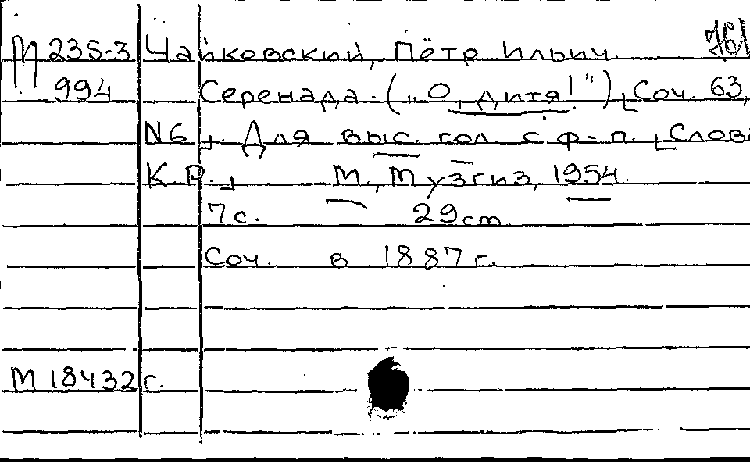 М 235-3 Чайковский, Пётр Ильич. 761
994 Серенада. („О, дитя!") Соч. 63,
N6. Для выс. гол. с ф-п. Слова
К.Р. М., Музгиз, 1954.
7с. 29cm
Соч. в 1887 г.
М 18432 г.